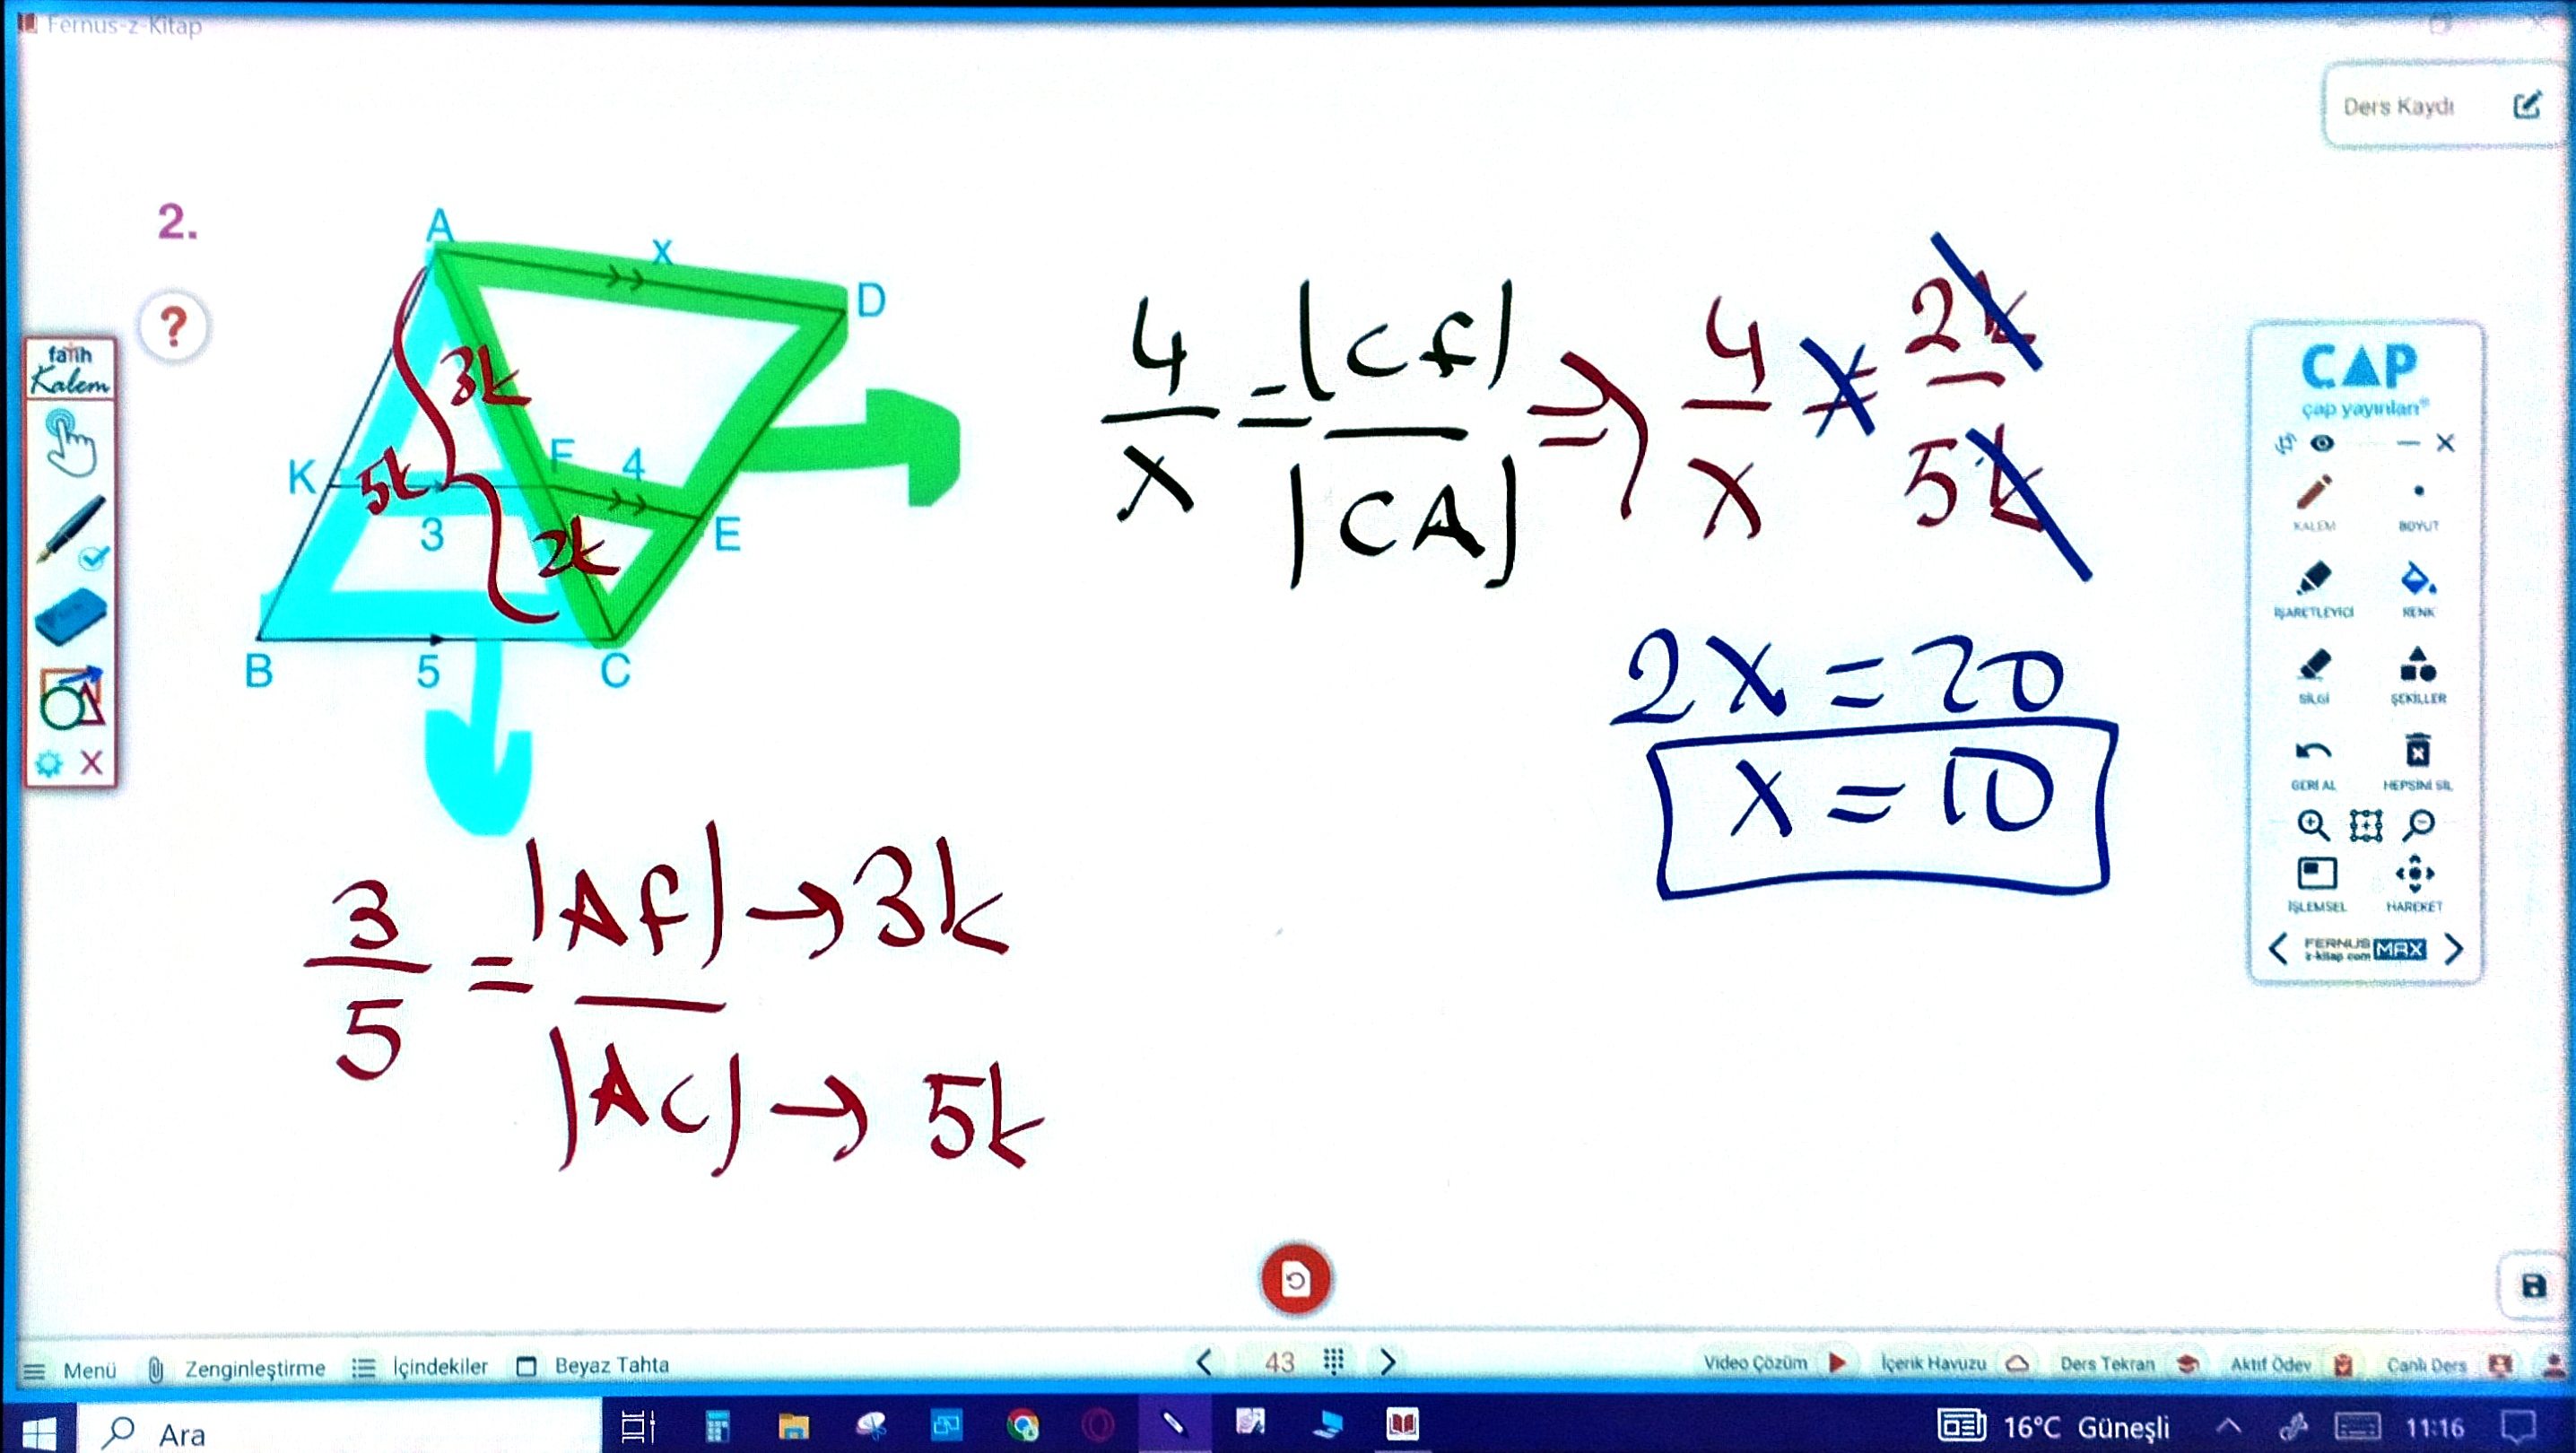 Fernus-z-Kitap
Ders Kaydı
2.
?
fatih
Kalem
A
x
D
3k
K
5k
F
4
3
2k
E
B
5
C
4/x = |CF|/|CA| ⇒ 4/x = 2k/5k
2x = 20
x = 10
3/5 = |AF| → 3k
|AC| → 5k
ÇAP
çap yayınları®
KALEM BOYUT
İŞARETLEYİCİ RENK
SİLGİ ŞEKİLLER
GERİ AL HEPSİNİ SİL
İŞLEMSEL HAREKET
FERNUS MAX
z-kitap.com
Menü Zenginleştirme İçindekiler Beyaz Tahta 43 Video Çözüm İçerik Havuzu Ders Tekrarı Aktif Ödev Canlı Ders
Ara 16°C Güneşli 11:16